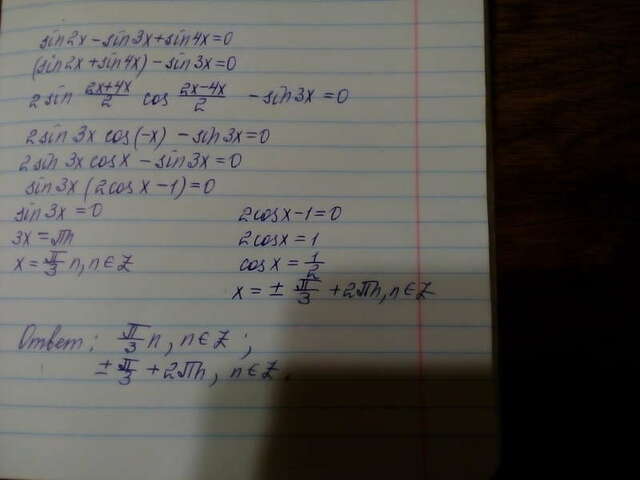 sin2x - sin3x + sin4x = 0
(sin2x + sin4x) - sin3x = 0
2 sin (2x+4x)/2 cos (2x-4x)/2 - sin3x = 0
2 sin 3x cos(-x) - sin3x = 0
2 sin 3x cos x - sin3x = 0
sin3x (2cos x - 1) = 0
sin 3x = 0
3x = πn
x = π/3 n, n ∈ Z
2cos x - 1 = 0
2cos x = 1
cos x = 1/2
x = ± π/3 + 2πn, n ∈ Z
Ответ: π/3 n, n ∈ Z ;
± π/3 + 2πn, n ∈ Z.